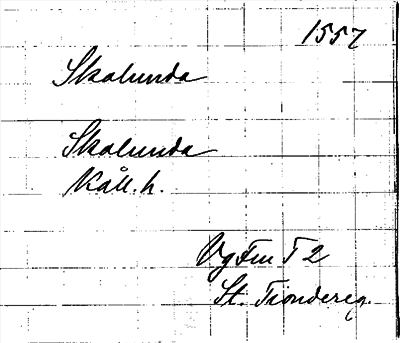 1557
Skalunda
Skalunda
Kåll. h.
Vg Fm T 2
St. Tiondereg.